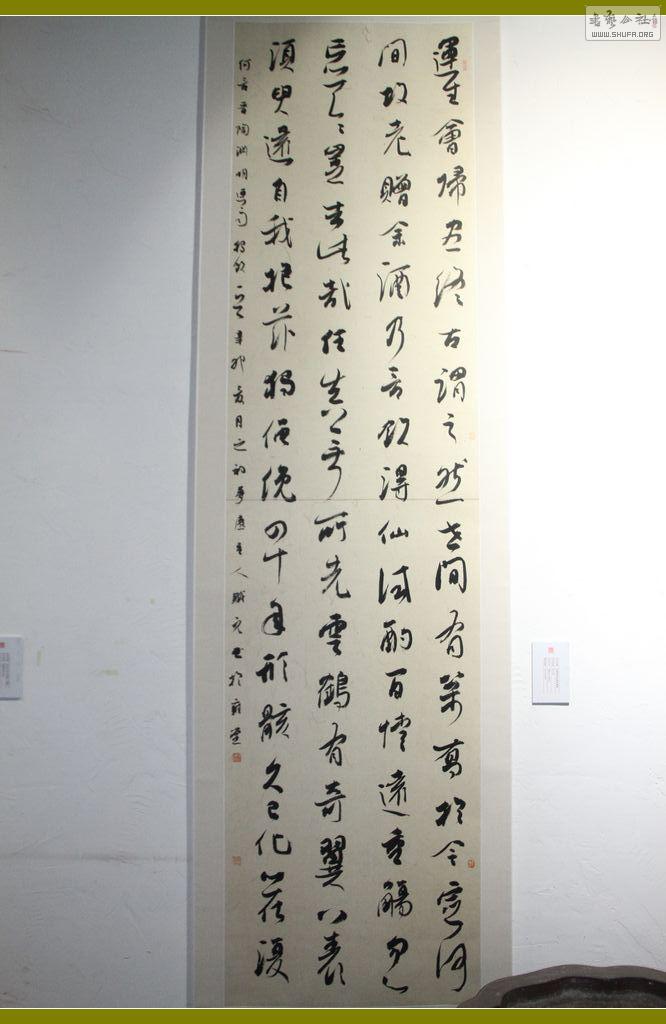 運生會歸盡終古謂之然世間有松喬於今定何
間故老贈余酒乃言飲得仙試酌百情遠重觴忽
忘天天豈去此哉任真無所先雲鶴有奇翼八表
須臾還自我抱茲獨僶俛四十年形骸久已化心在復
何言晉陶淵明連雨獨飲一首辛卯夏月之初夢廬主人
WWW.SHUFA.ORG